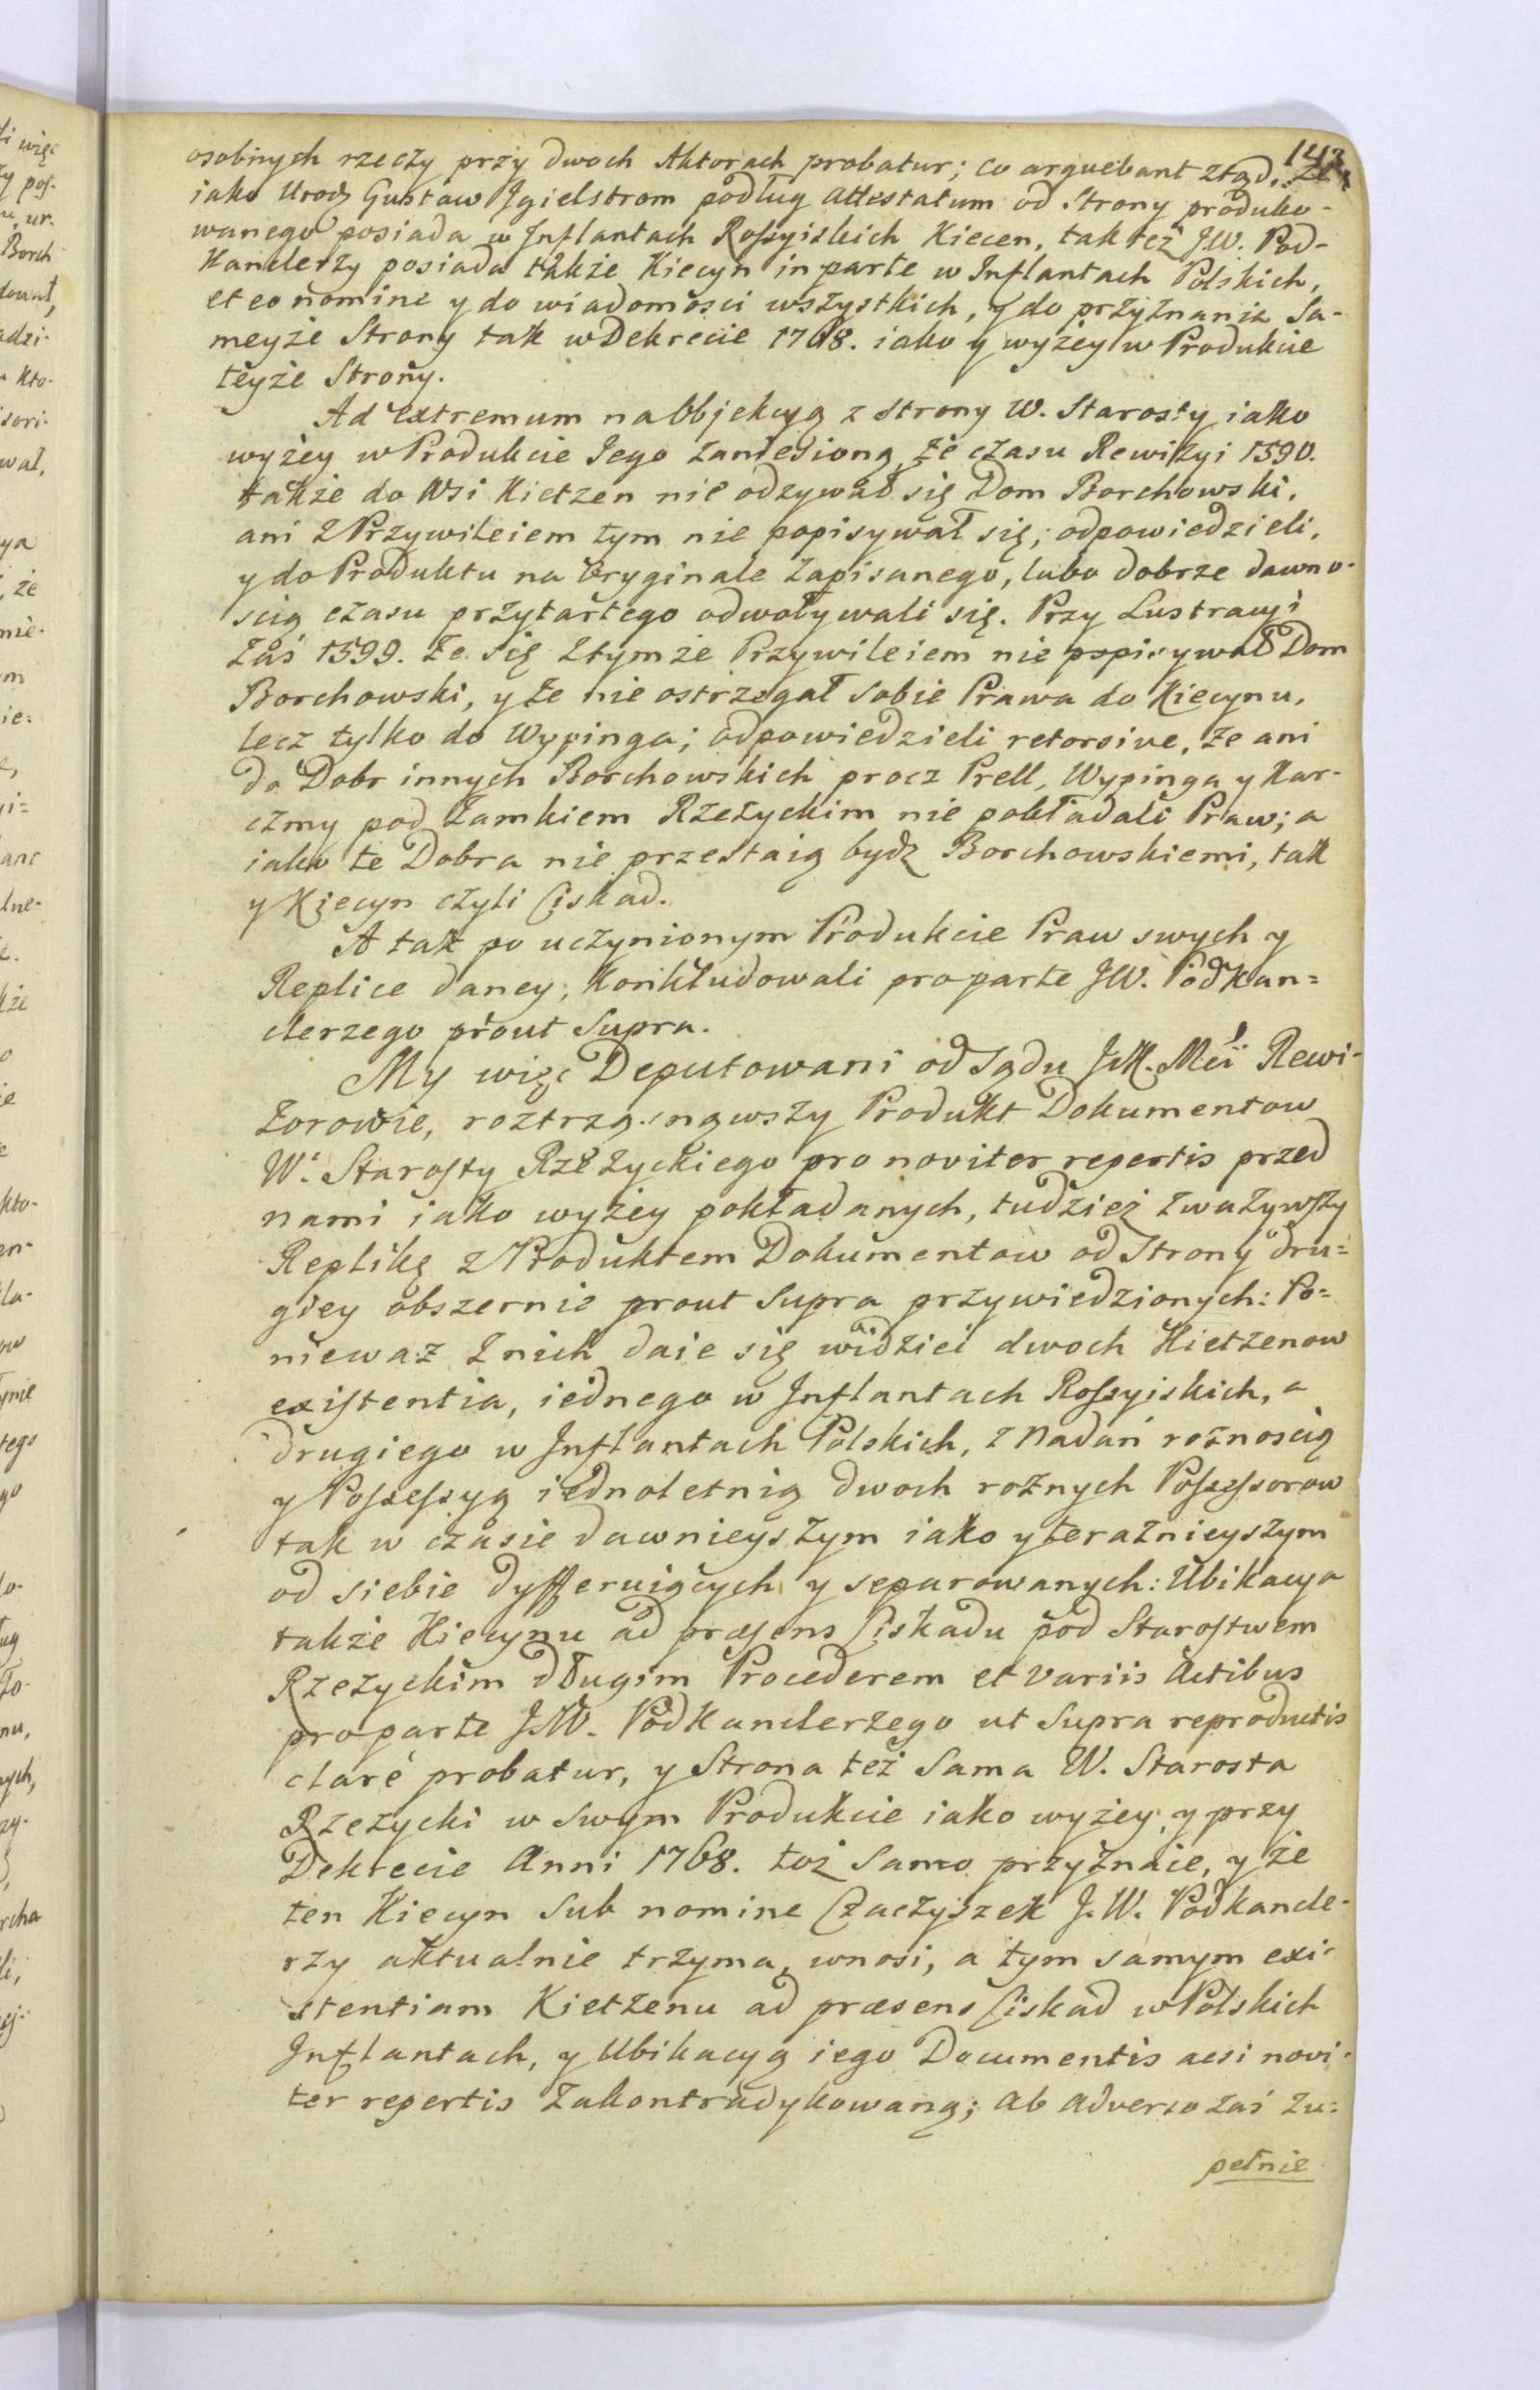 143
osobnych rzeczy przy dwoch Aktorach probatur; co arguebant ztąd, że
iako Urodz Gustaw Jgielstrom podług attestatum od Strony produko-
wanego posiada w Jnflantach Rossyiskich Kiecen, tak też J.W. Pod-
Kanclerzy posiada także Kiecyn in parte w Jnflantach Polskich,
et eo nomine y do wiadomosci wszystkich, y do przyznania Sa-
meyże Strony tak w Dekrecie 1768. iako y wyżey w Produkcie
teyże Strony.
Ad extremum na Obbjekcyą z Strony W. Starosty iako
wyżey w Produkcie Jego zaniesioną, że czasu Rewizyi 1590.
także do Wsi Kietzen nie odzywał się Dom Borchowski,
ani z Przywileiem tym nie popisywał się; odpowiedzieli,
y do Produktu na Oryginale zapisanego, lubo dobrze dawno-
scią czasu przytartego odwoływali się. Przy Lustracyi
zaś 1599. że się z tymże Przywileiem nie popisywał Dom
Borchowski, y że nie ostrzegał sobie Prawa do Kiecynu,
lecz tylko do Wypinga; odpowiedzieli retorsive, że ani
do Dobr innych Borchowskich procz Prell, Wypinga y Kar-
czmy pod Zamkiem Rzeżyckim nie pokładali Praw; a
iako te Dobra nie przestaią bydz Borchowskiemi, tak
y Kiecyn czyli Ciskad.
A tak po uczynionym Produkcie Praw swych y
Replice daney, konkludowali pro parte JW. Podkan=
clerzego prout Supra.
My więc Deputowani od Sądu JK. Mci Rewi-
zorowie, roztrząsnąwszy Produkt Dokumentow
W. Starosty Rzeżyckiego pro noviter repertis przed
nami iako wyżey pokładanych, tudzież zważywszy
Replikę z Produktem Dokumentow od Strony dru=
giey obszernie prout Supra przywiedzionych: Po=
nieważ z nich daie się widzieć dwoch Kietzenow
existentia, iednego w Jnflantach Rossyiskich, a
drugiego w Jnflantach Polskich, z nadań rożnoscią
y Possessyą iednoletnią dwoch rożnych Possessorow
tak w czasie dawnieyszym iako y teraznieyszym
od siebie dyfferuiących y separowanych: Ubikacya
także Kiecynu ad præsens Ciskadu pod Starostwem
Rzeżyckim długim Procederem et variis Actibus
pro parte J.W. Podkanclerzego ut Supra reproductis
claré probatur, y Strona też Sama W. Starosta
Rzeżycki w swym Produkcie iako wyżey, y przy
Dekrecie Anni 1768. toż samo przyznaie, y że
ten Kiecyn Sub nomine Czaczyszek J.W. Podkancle-
rzy aktualnie trzyma, wnosi, a tym samym exi-
stentiam Kietzenu ad præsens Ciskad w Polskich
Jnflantach, y Ubikacyą iego Documentis acsi novi-
ter repertis zakontradykowaną; ab adverso zaś zu=
pełnie